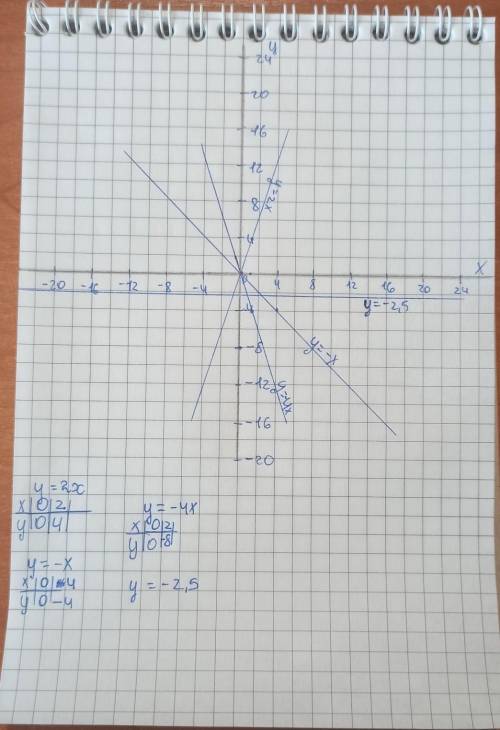 y
24
20
16
12
8
4
y=2x
x
-20 -16 -12 -8 -4 0 4 8 12 16 20 24
y=-2,5
-4
-8
y=-x
-12
y=-4x
-16
-20
y=2x
x|0|2|
y|0|4|
y=-4x
x|0|2|
y|0|-8|
y=-x
x|0|-4
y|0|-4
y=-2,5